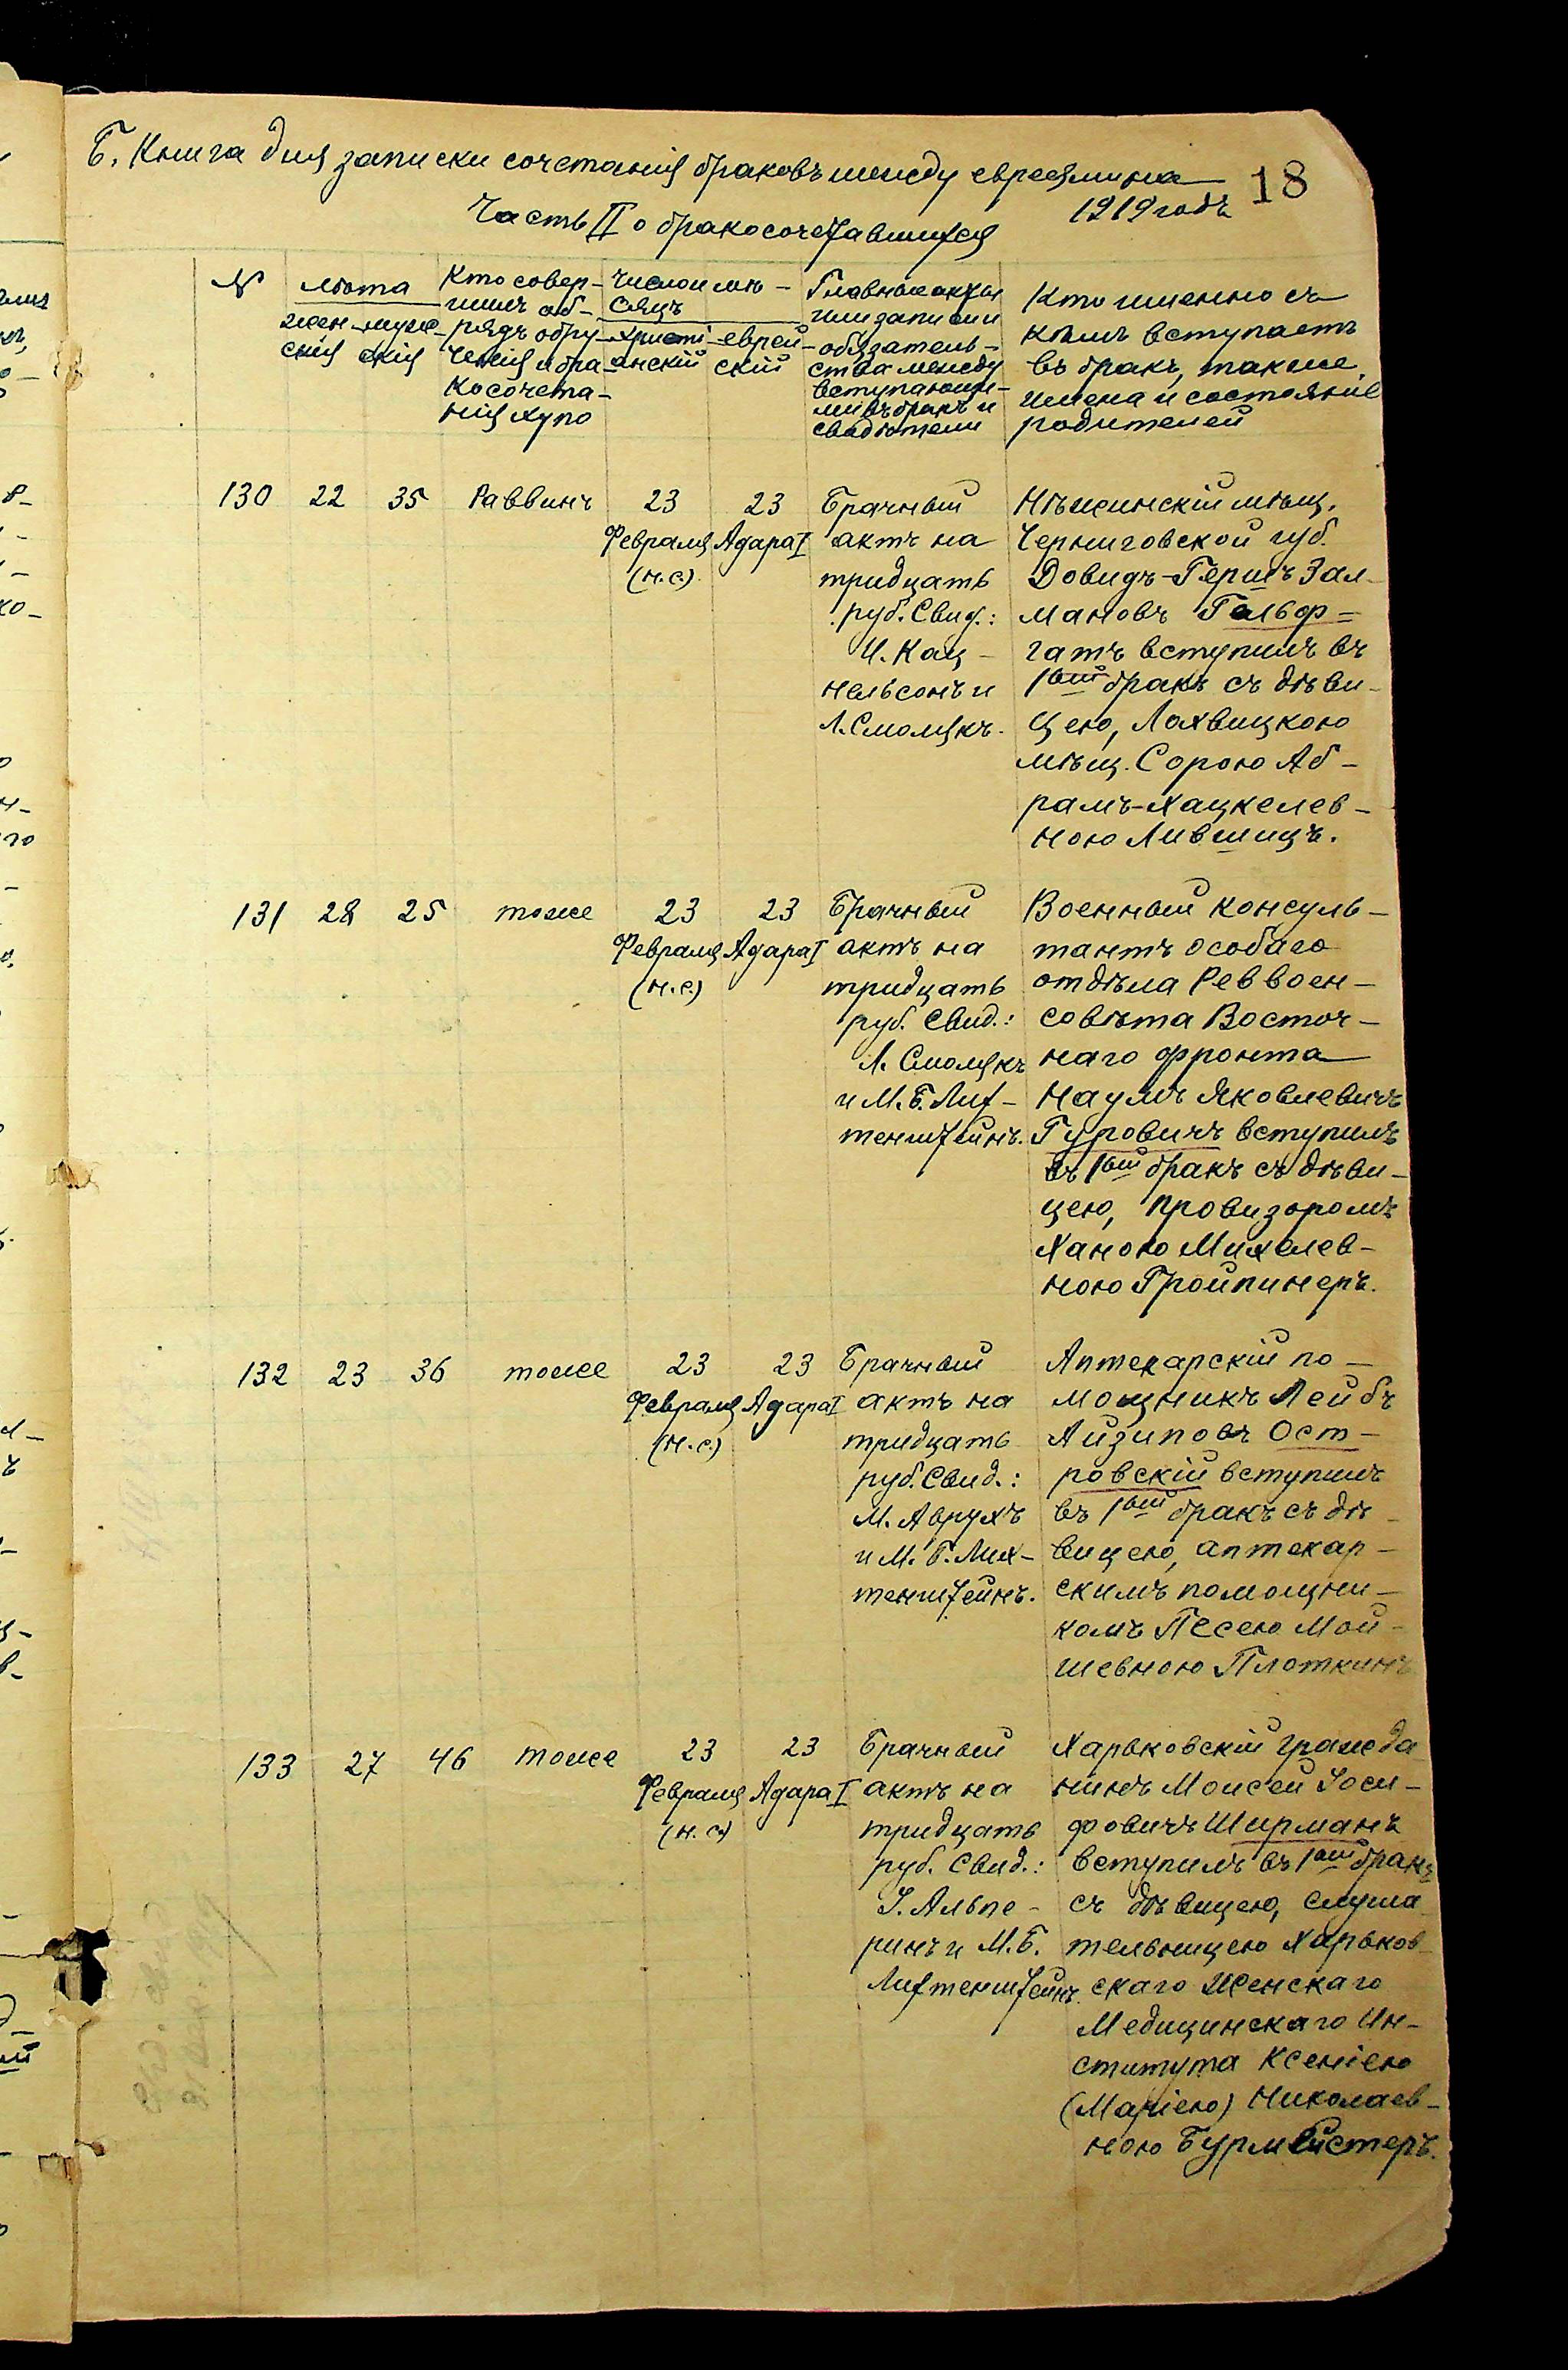 Б. Книга для записки сочетанія браковъ между евреями на
1919 годъ
18
Часть II о бракосочетавшихся
№
лѣта
женскія
мужескія
Кто совер-
шилъ об-
рядъ обру-
ченія и бра-
косочета-
нія хупо
Число и мѣ-
сяцъ
Христі-
анскій
еврей-
скій
Главные акты
или записи и
обязатель-
ства между
вступающи-
ми въ бракъ и
свидѣтели
Кто именно съ
кѣмъ вступаетъ
въ бракъ, также
имена и состояніе
родителей
130 22 35 Раввинъ
23
Февраля
(н.с.)
23
Адара I
Брачный
актъ на
тридцать
руб. Свид.:
И. Кац-
нельсонъ и
Л. Смолякъ.
Нѣжинскій мѣщ.
Черниговской губ.
Довидъ-Гершъ Зал-
мановъ Гельф-
гатъ вступилъ въ
1ый бракъ съ дѣви-
цею, Лохвицкою
мѣщ. Сорою Аб-
рамъ-Хацкелев-
ною Лившицъ.
131 28 25 тоже
23
Февраля
(н.с.)
23
Адара I
Брачный
актъ на
тридцать
руб. Свид.:
Л. Смолякъ
и М. Б. Лих-
тенштейнъ.
Военный консуль-
тантъ особаго
отдѣла Реввоен-
совѣта Восточ-
наго фронта
Наумъ Яковлевичъ
Гуровичъ вступилъ
въ 1ый бракъ съ дѣви-
цею, провизоромъ
Ханою Михелев-
ною Гройпинеръ.
132 23 36 тоже
23
Февраля
(н.с.)
23
Адара I
Брачный
актъ на
тридцать
руб. Свид.:
М. Аврухъ
и М. Б. Лих-
тенштейнъ.
Аптекарскій по-
мощникъ Лейбъ
Айзиковъ Ост-
ровскій вступилъ
въ 1ый бракъ съ дѣ-
вицею, аптекар-
скимъ помощни-
комъ Песею Мой-
шевною Плоткинъ
133 27 46 тоже
23
Февраля
(н.с.)
23
Адара I
Брачный
актъ на
тридцать
руб. Свид.:
I. Альпе-
ринъ и М. Б.
Лихтенштейнъ.
Харьковскій гражда
нинъ Моисей Іоси-
фовичъ Ширманъ
вступилъ въ 1ый бракъ
съ дѣвицею, слуша
тельницею Харьков-
скаго Женскаго
Медицинскаго Ин-
ститута Ксеніею
(Маріею) Николаев-
ною Бурмейстеръ.